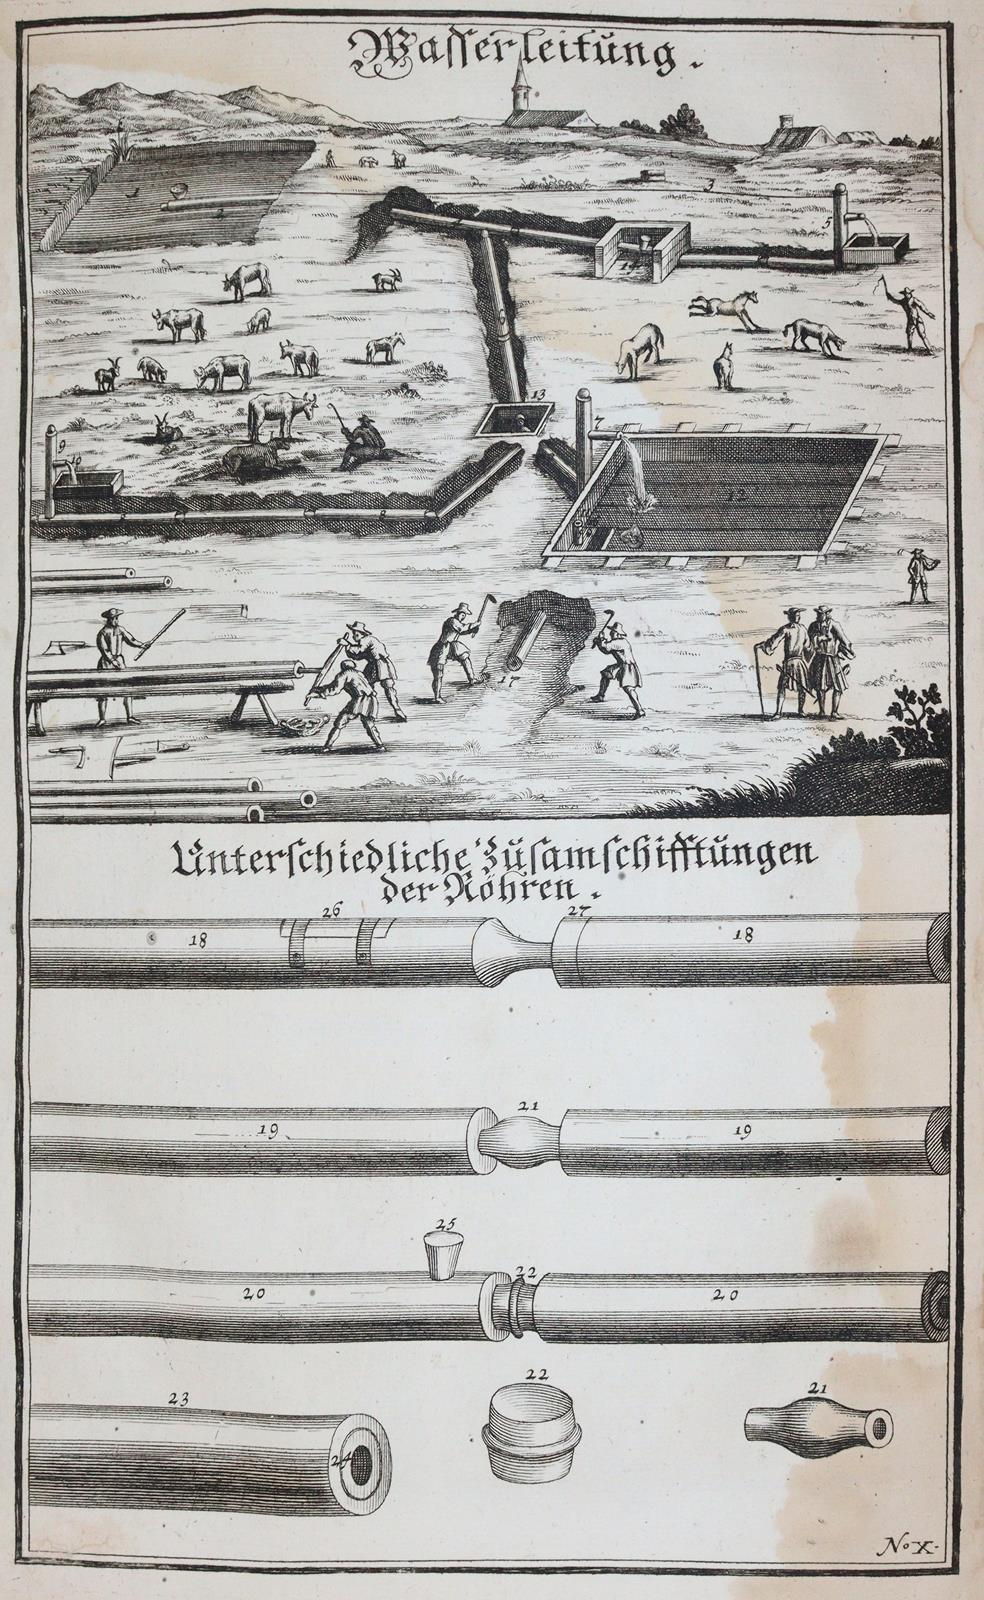 Wasserleitung.
1
2
3
5
14
13
7
9
10
8
12
17
Unterschiedliche Zusamschifftungen
der Röhren.
26
27
18
18
21
19
19
25
22
20
20
22
21
23
24
No X.